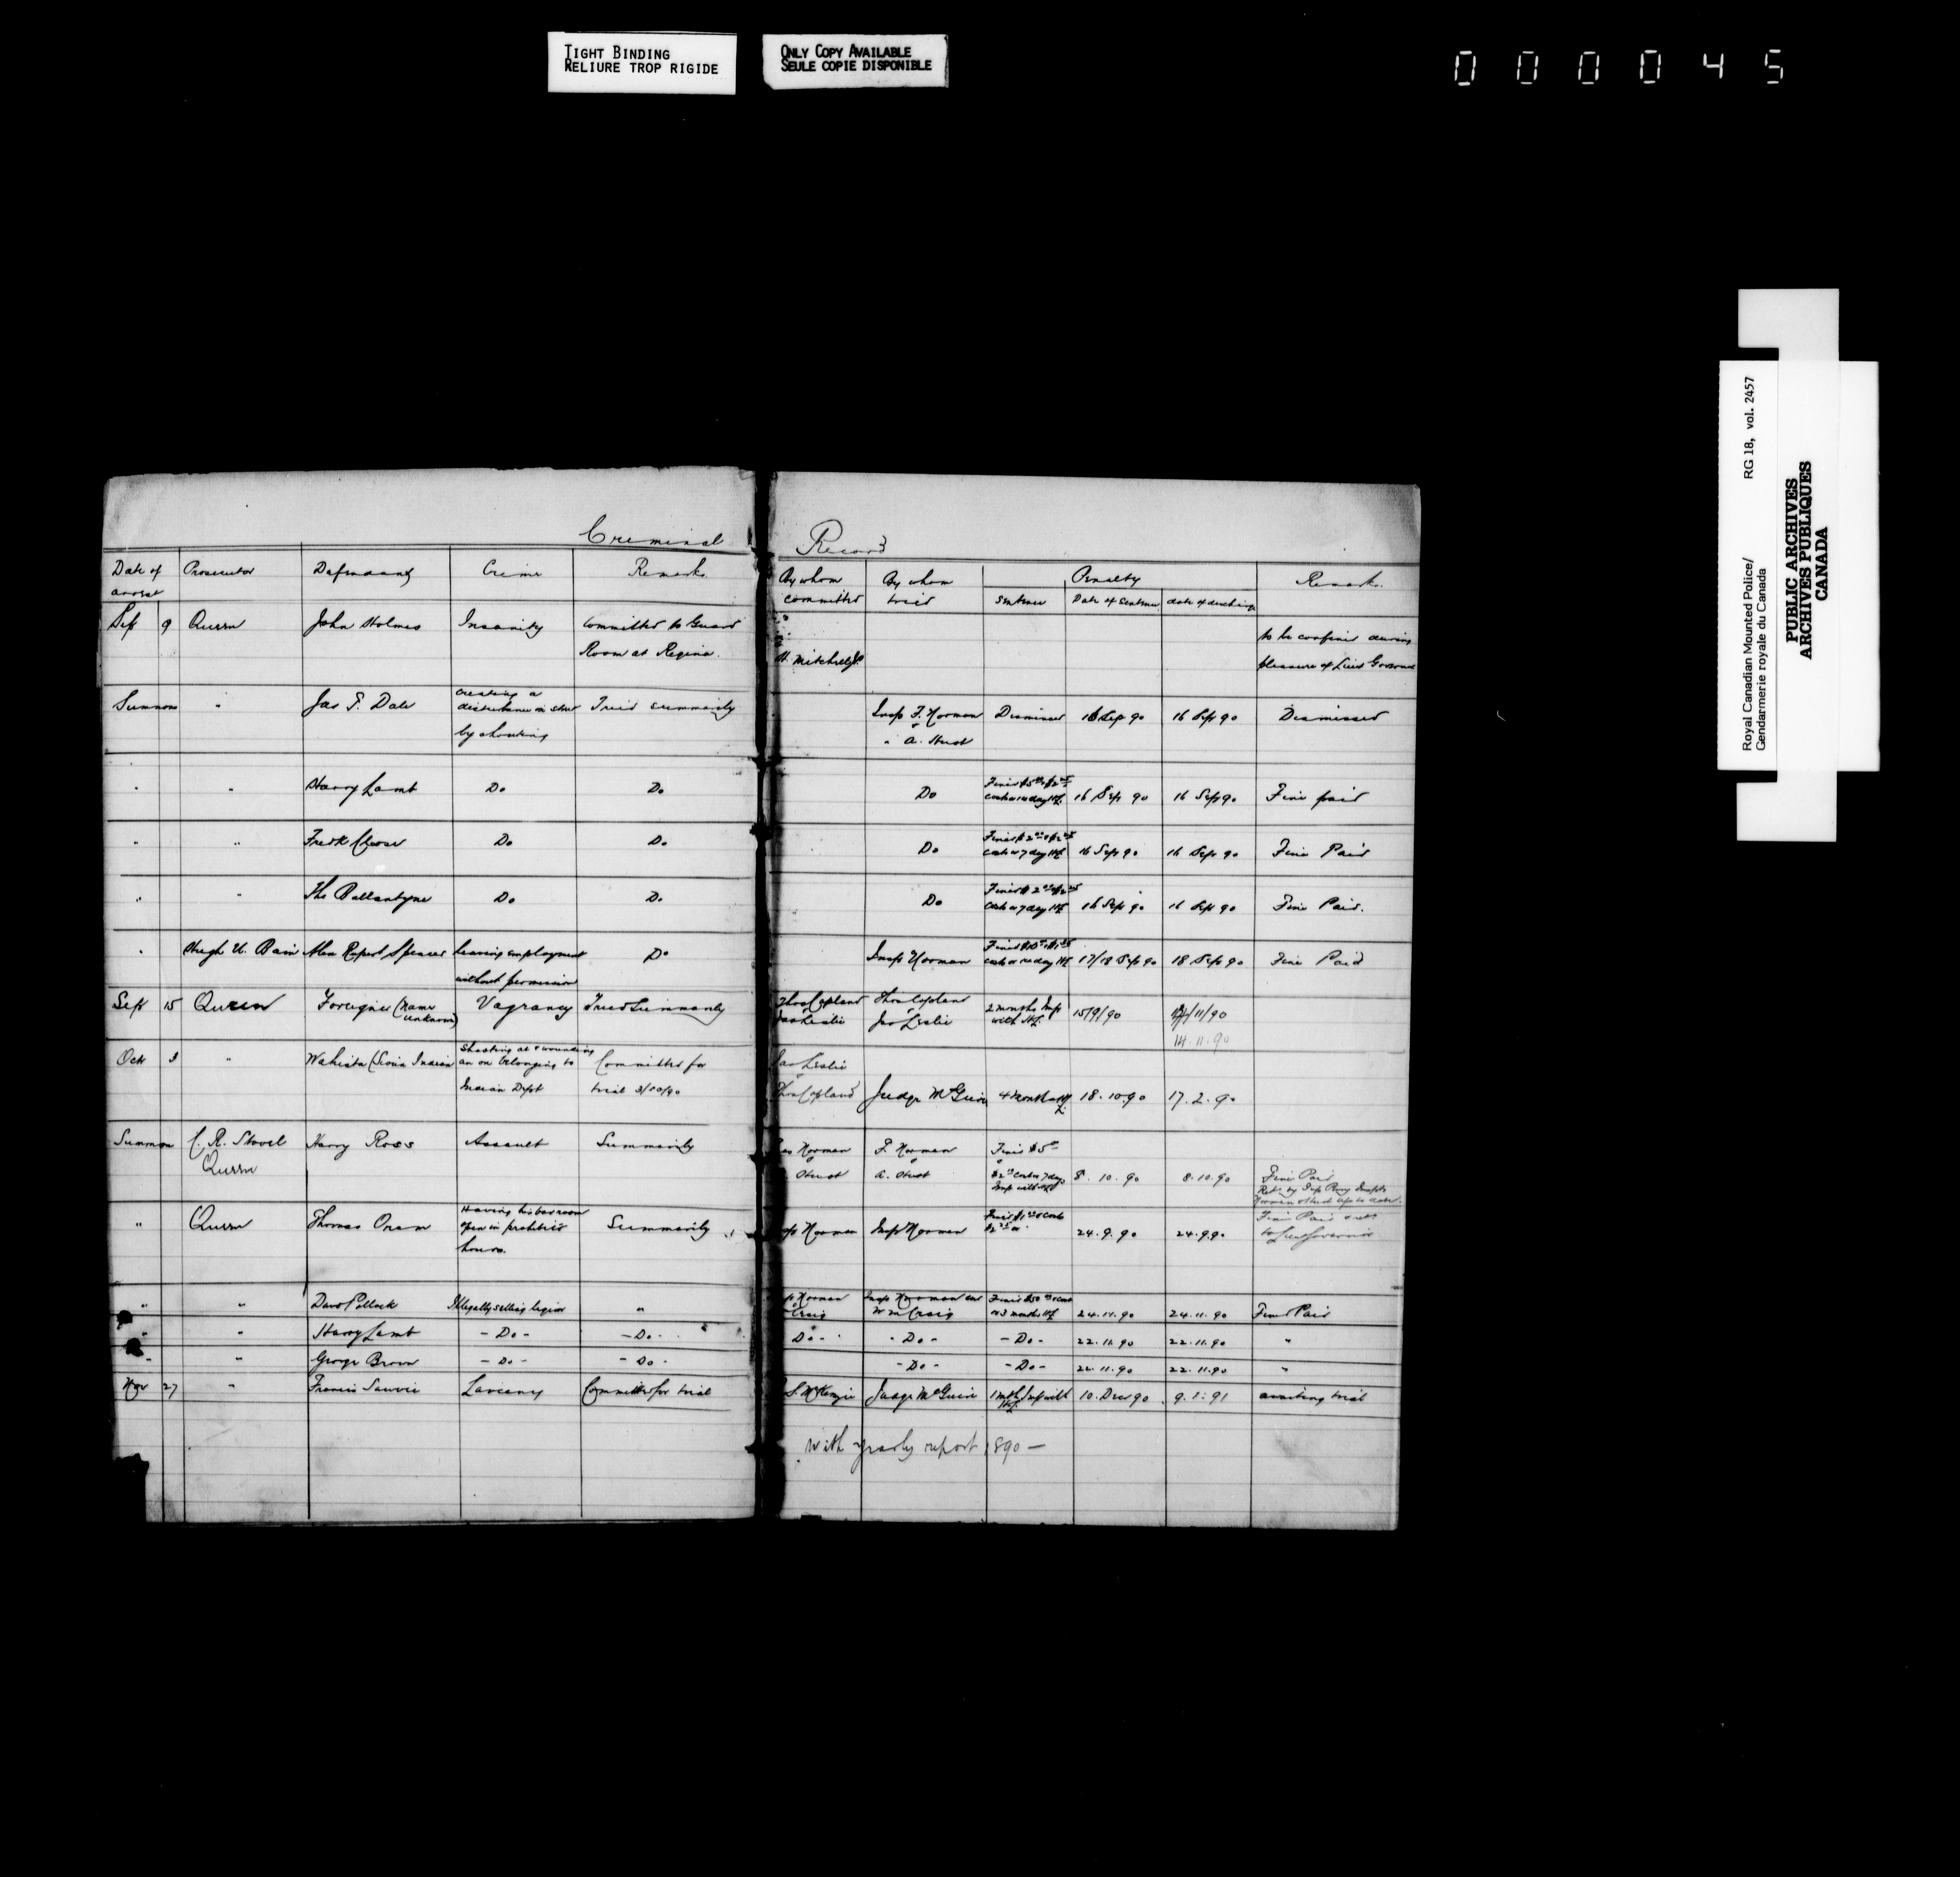 TIGHT BINDING
RELIURE TROP RIGIDE
ONLY COPY AVAILABLE
SEULE COPIE DISPONIBLE
000045
Royal Canadian Mounted Police/ RG 18, vol. 2457
Gendarmerie royale du Canada
PUBLIC ARCHIVES
ARCHIVES PUBLIQUES
CANADA
Criminal Record
Date of arrest Prosecutor Defendant Crime Remarks By whom committed By whom tried Penalty Remarks
Sentence Date of Sentence date of discharge
Sep 9 Queen John Holmes Insanity Committed to Guard to be confined during
Room at Regina. H. Mitchell JP pleasure of Lieut Governor
Summons " Jas F. Dale Creating a
disturbance on street Tried summarily Insp F. Norman Dismissed 16 Sep 90 16 Sep 90 Dismissed
by shouting " A. Hurst
" " Harry Lamb Do Do Do 16 Sep 90 16 Sep 90 Fine paid
costs or 14 days HL
" " Fredk Do Do Do 16 Sep 90 16 Sep 90 Fine Paid
costs or 7 days HL
" " Ths Ballantyne Do Do Do 16 Sep 90 16 Sep 90 Fine Paid.
costs or 7 days HL
" Hugh U. Bain Alex Rupert Spencer Leaving employment Do Insp Norman 17/18 Sep 90 18 Sep 90 Fine Paid
without permission
Sept 15 Queen Foreigner (name Vagrancy Tried Summarily Thos Copland Thos Copland 2 months Imp 15/9/90 /11/90
unknown) Jas Leslie Jas Leslie with HL. 14.11.90
Oct 3 " Wahista (Sioux Indian Shooting at & wounding
an ox belonging to Committed for Jas Leslie
Indian Dept trial 3/10/90 Thos Copland Judge McGuire 4 months HL 18.10.90 17.2.90
Summon C. R. Stovel Harry Ross Assault Summarily Norman F. Norman Fined $5
Queen Hurst A. Hurst costs or 7 days 8.10.90 8.10.90 Fine Paid
Imp with HL
" Queen Thomas Oram Having his bar room
open in prohibited Summarily Norman Insp Norman 24.9.90 24.9.90 Fine Paid
hours. to Lieut Governor
" " Davd Pollock Illegally selling liquor " Norman Insp Norman and Fined $50 & cost
Craig W m Craig or 3 months HL 24.11.90 24.11.90 Fined Paid
" " Harry Lamb - Do - - Do - Do - - Do - - Do - 22.11.90 22.11.90 "
" " George Brown - Do - - Do - - Do - - Do - 22.11.90 22.11.90 "
Nov 27 " Francis Larceny Committed for trial S. McKenzie Judge McGuire 1 mth Imp with HL 10. Dec 90 9.1.91 awaiting trial
with yearly report 1890 —